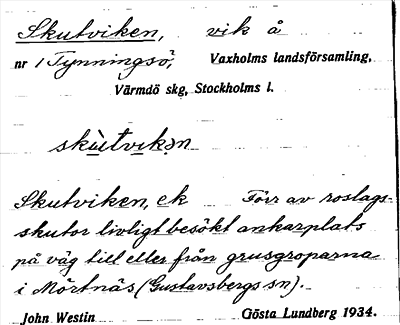 Skutviken, vik å
nr 1 Tynningsö, Vaxholms landsförsamling,
Värmdö skg, Stockholms l.
skùtvikən
Skutviken, ek Förr av roslags-
skutor livligt besökt ankarplats
på väg till eller från grusgroparna
i Mörtnäs (Gustavsbergs sn).
John Westin Gösta Lundberg 1934.